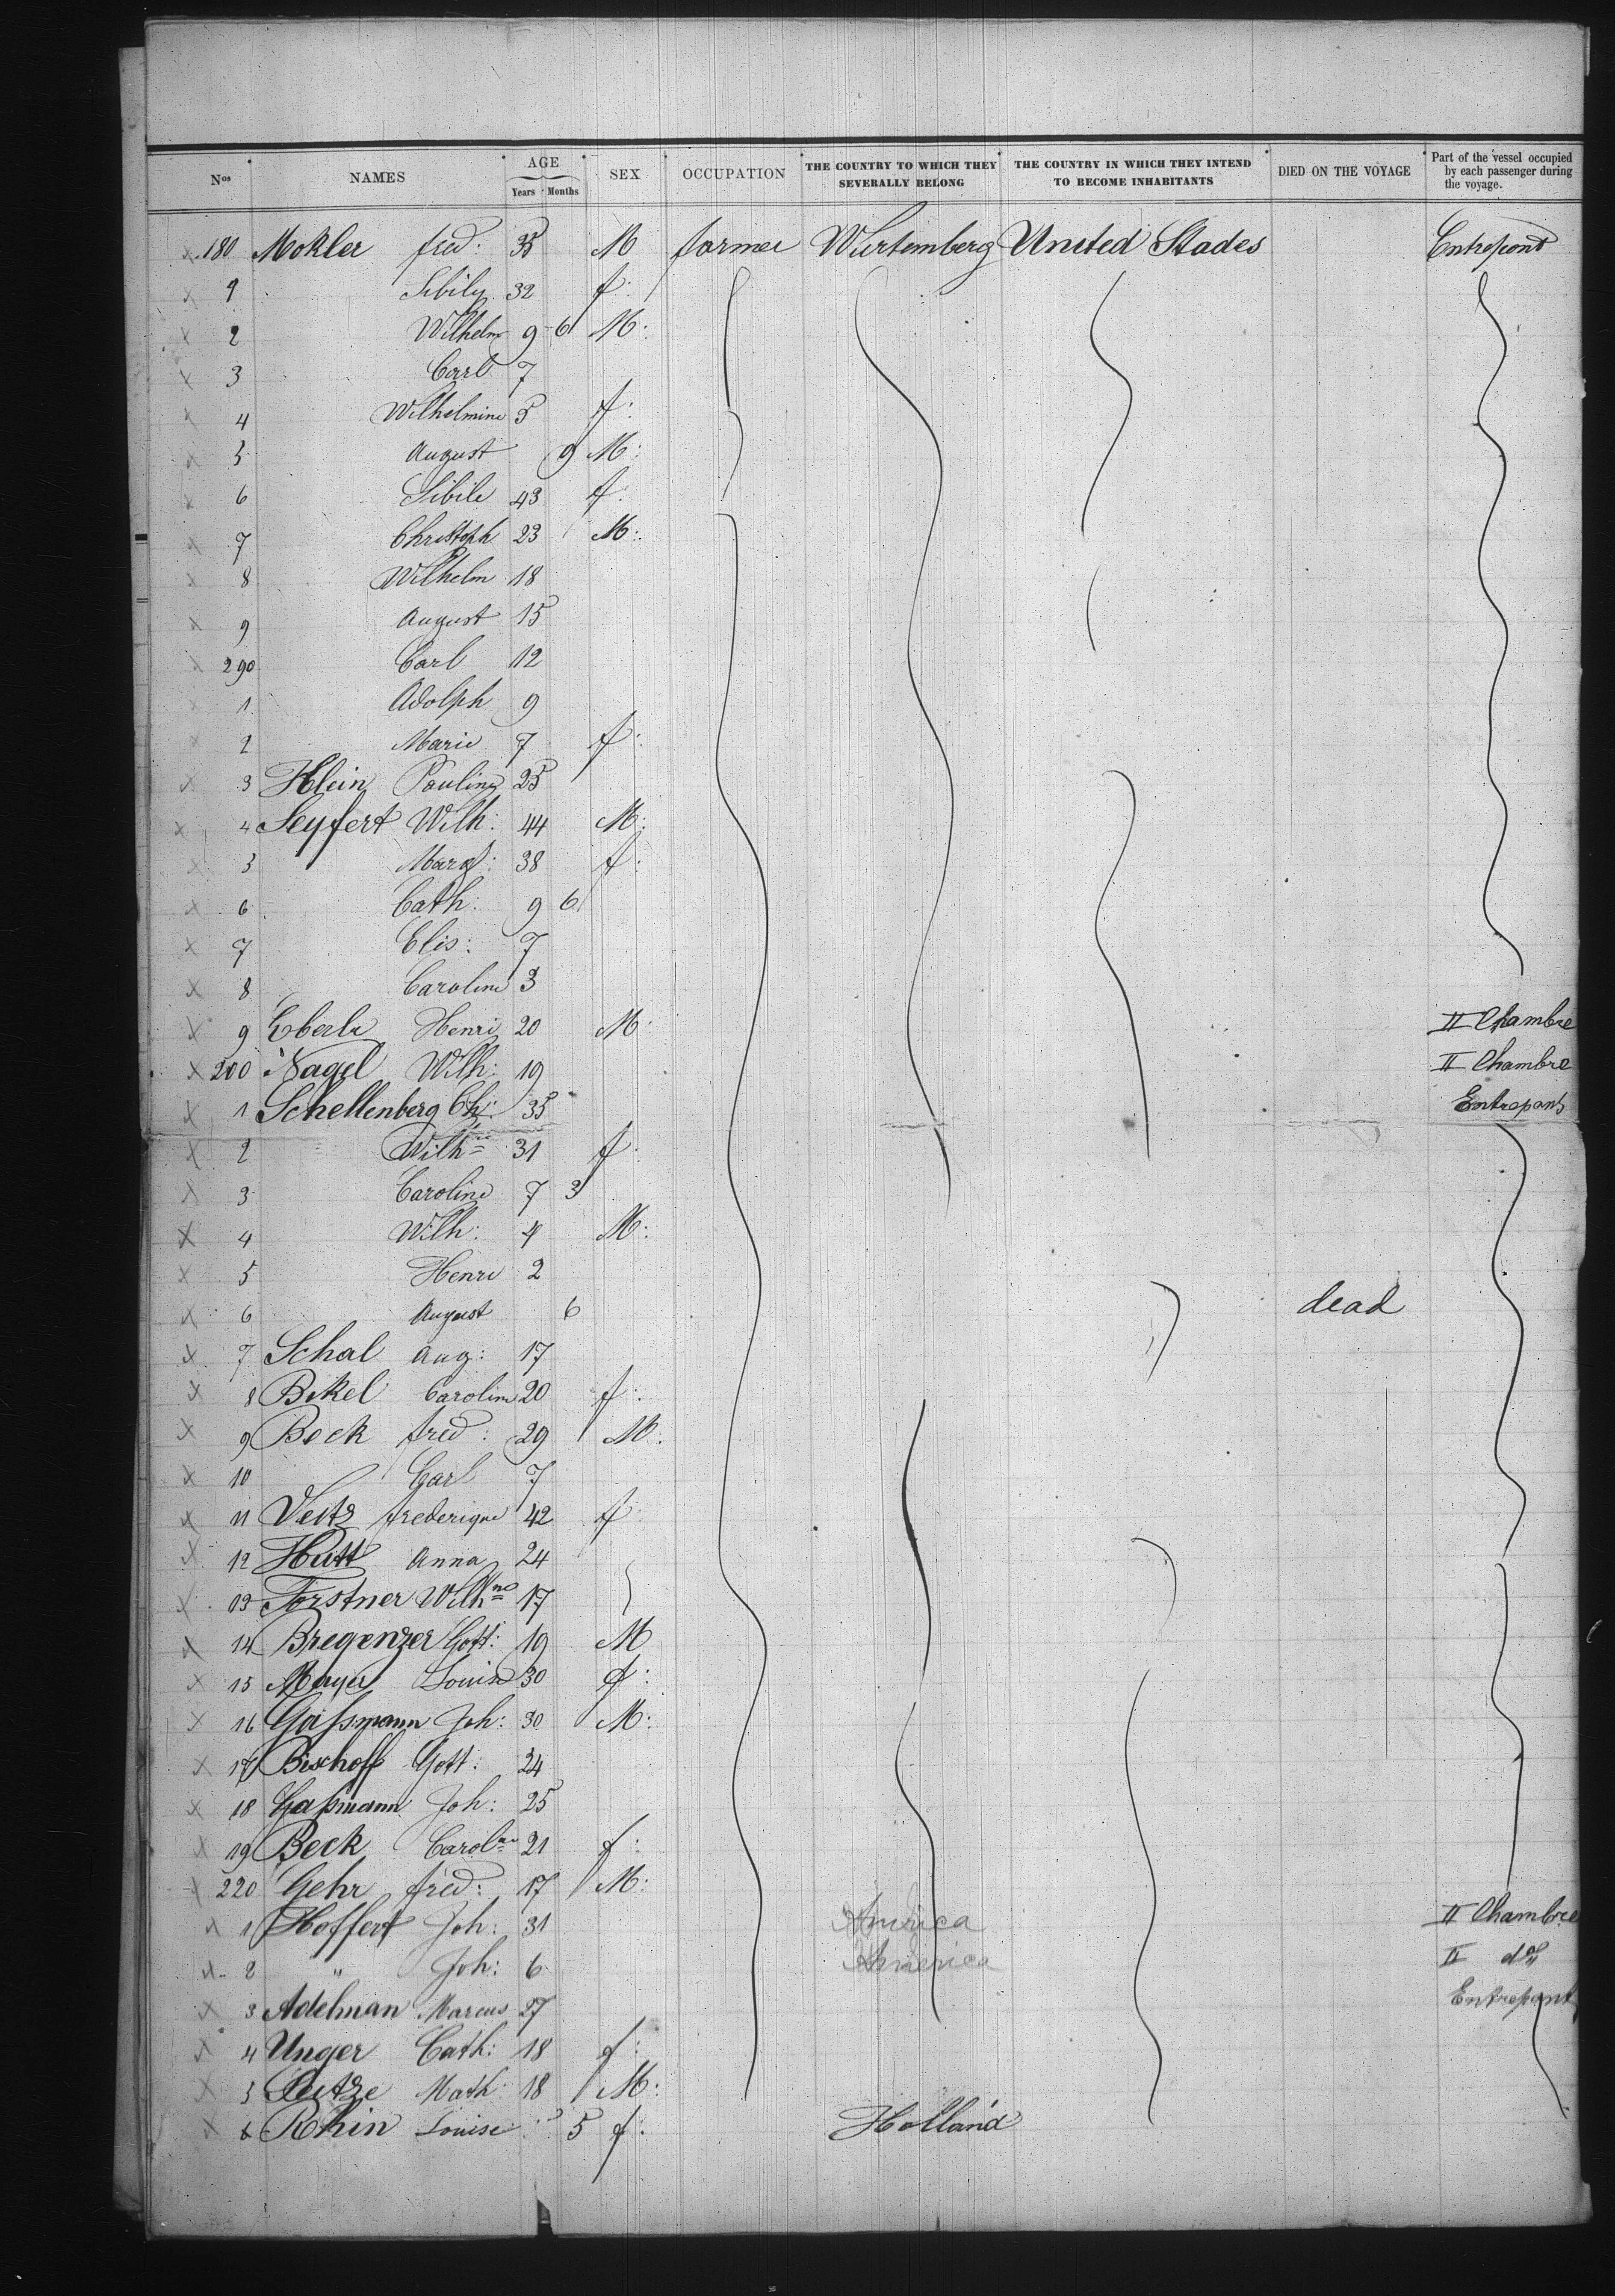 Nos NAMES AGE Years Months SEX OCCUPATION THE COUNTRY TO WHICH THEY SEVERALLY BELONG THE COUNTRY IN WHICH THEY INTEND TO BECOME INHABITANTS DIED ON THE VOYAGE Part of the vessel occupied by each passenger during the voyage.
x 180 Mokler fred: 35 M farmer Wurtemberg United Stades Entrepont
x 1 Sibily 32 f:
x 2 Wilhelm 9 6 M:
x 3 Carl 7
x 4 Wilhelmine 5 f:
x 5 August 9 M:
x 6 Sibile 43 f:
x 7 Christoph 23 M:
x 8 Wilhelm 18
x 9 August 15
x 290 Carl 12
x 1 Adolph 9
x 2 Marie 7 f:
x 3 Klein Pauline 25
x 4 Seyfert Wilh: 44 M:
x 5 Marg: 38 f:
x 6 Cath: 9 6
x 7 Elis: 7
x 8 Caroline 3
x 9 Eberle Henri 20 M: II Chambre
x 200 Nagel Wilh: 19 II Chambre
x 1 Schellenberg Ch: 35 Entrepont
x 2 Wilhne 31 f:
x 3 Caroline 7 3
x 4 Wilh: 4 M:
x 5 Henri 2
x 6 August 6 dead
x 7 Schal Aug: 17
x 8 Bikel Caroline 20 f:
x 9 Beck fred: 29 M:
x 10 Carl 7
x 11 Veitz frederique 42 f
x 12 Hutt Anna 24
x 13 Forstner Wilhne 17
x 14 Bregenzer Gott: 19 M
x 15 Mayer Louise 30 f:
x 16 Gaßmann Joh: 30 M:
x 17 Bischoff Gott: 24
x 18 Gaßmann Joh: 25
x 19 Beck Carolne 21 f:
x 220 Gehr fred: 17 M:
x 1 Hoffert Joh: 31 America II Chambre
x 2 " Joh: 6 America II do
x 3 Adelman Marcus 27 Entrepont
x 4 Unger Cath: 18 f:
x 5 Math: 18 M:
x 6 Rhin Louise 5 f: Holland